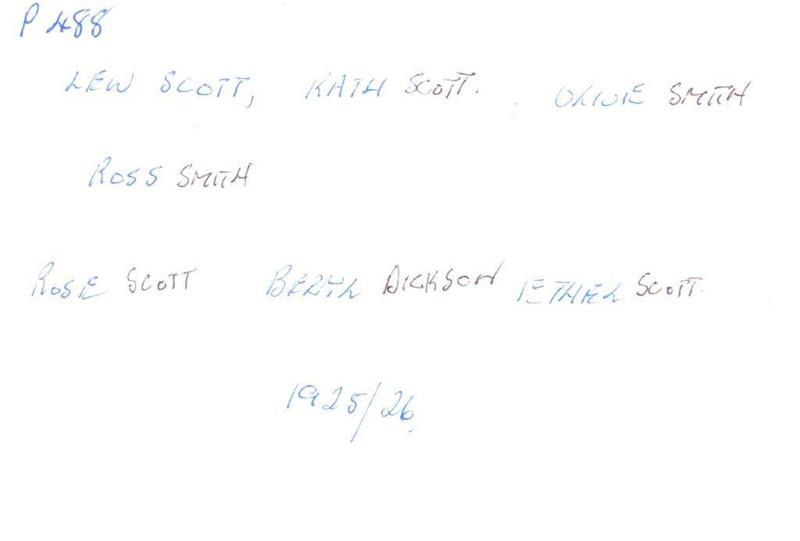 P 488
LEW SCOTT, KATH SCOTT. OLIVE SMITH
ROSS SMITH
ROSE SCOTT BERYL DICKSON ETHEL SCOTT.
1925/26.